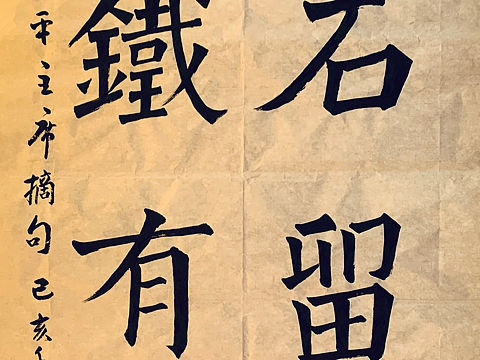 石留
鐵有
平主席摘句己亥